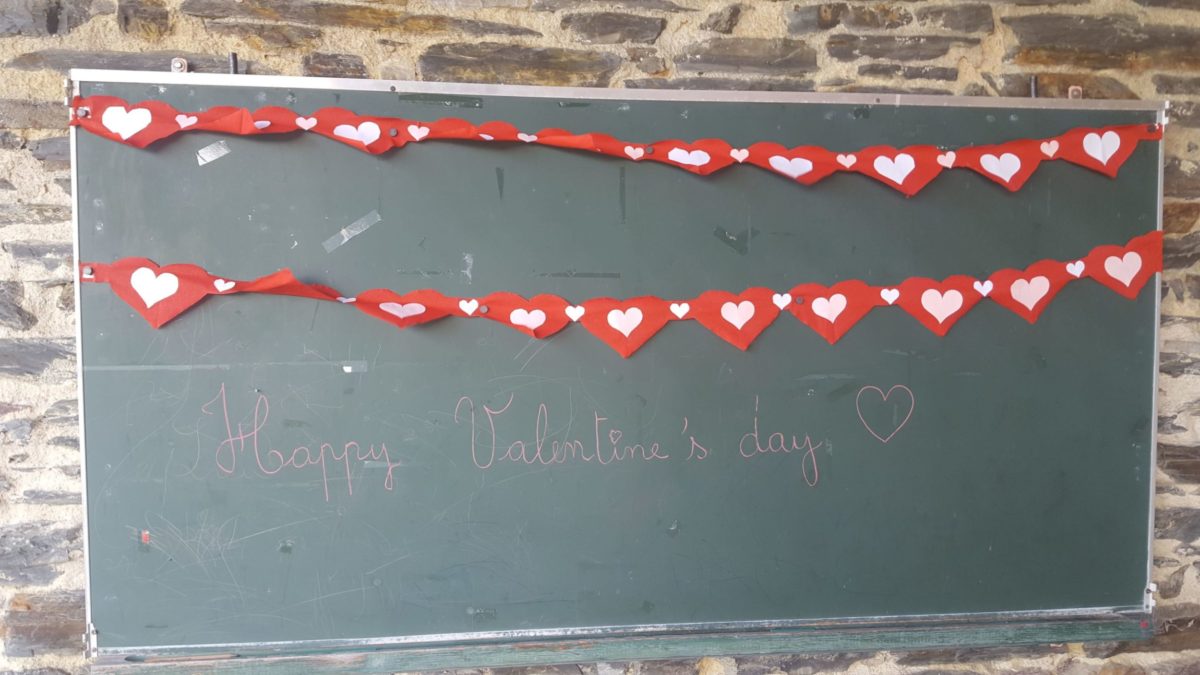 Happy Valentine's day ♡